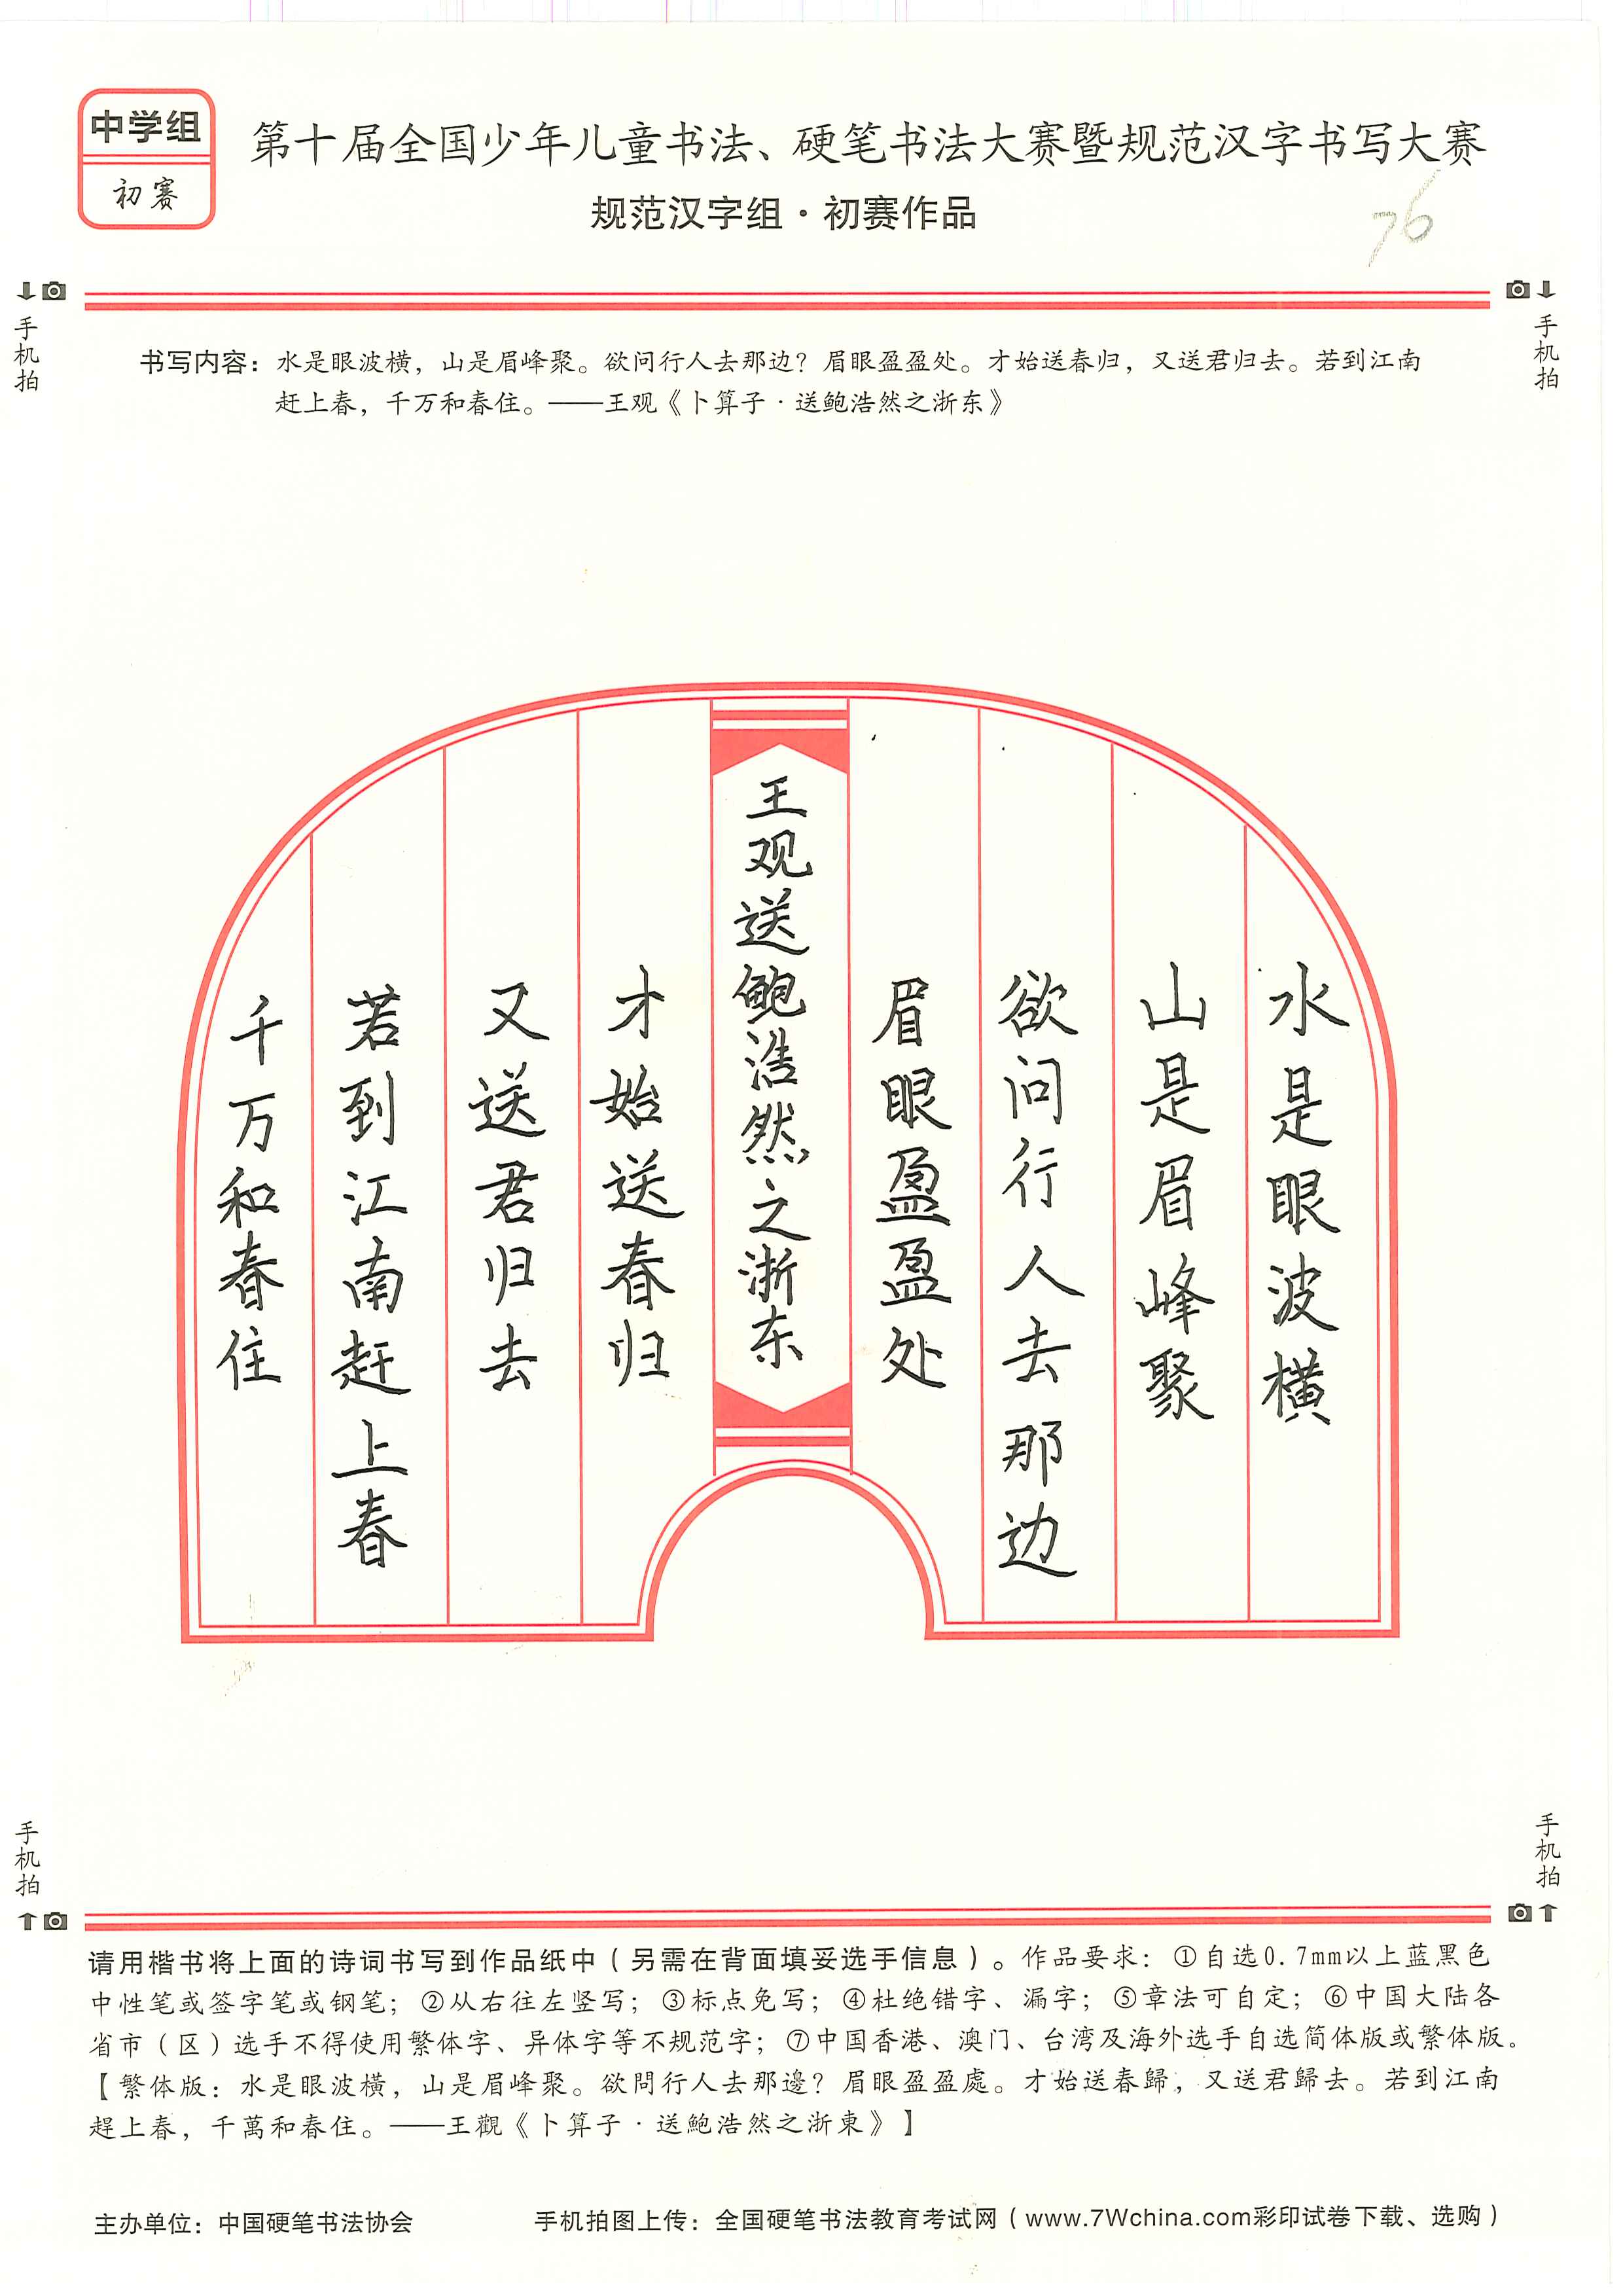 中学组
初赛
第十届全国少年儿童书法、硬笔书法大赛暨规范汉字书写大赛
规范汉字组·初赛作品
76
手机拍
手机拍
书写内容：水是眼波横，山是眉峰聚。欲问行人去那边？眉眼盈盈处。才始送春归，又送君归去。若到江南
赶上春，千万和春住。——王观《卜算子·送鲍浩然之浙东》
水是眼波横
山是眉峰聚
欲问行人去那边
眉眼盈盈处
王观送鲍浩然之浙东
才始送春归
又送君归去
若到江南赶上春
千万和春住
手机拍
手机拍
请用楷书将上面的诗词书写到作品纸中（另需在背面填妥选手信息）。作品要求：①自选0.7mm以上蓝黑色
中性笔或签字笔或钢笔；②从右往左竖写；③标点免写；④杜绝错字、漏字；⑤章法可自定；⑥中国大陆各
省市（区）选手不得使用繁体字、异体字等不规范字；⑦中国香港、澳门、台湾及海外选手自选简体版或繁体版。
【繁体版：水是眼波横，山是眉峰聚。欲問行人去那邊？眉眼盈盈處。才始送春歸，又送君歸去。若到江南
趕上春，千萬和春住。——王觀《卜算子·送鮑浩然之浙東》】
主办单位：中国硬笔书法协会
手机拍图上传：全国硬笔书法教育考试网（www.7Wchina.com彩印试卷下载、选购）